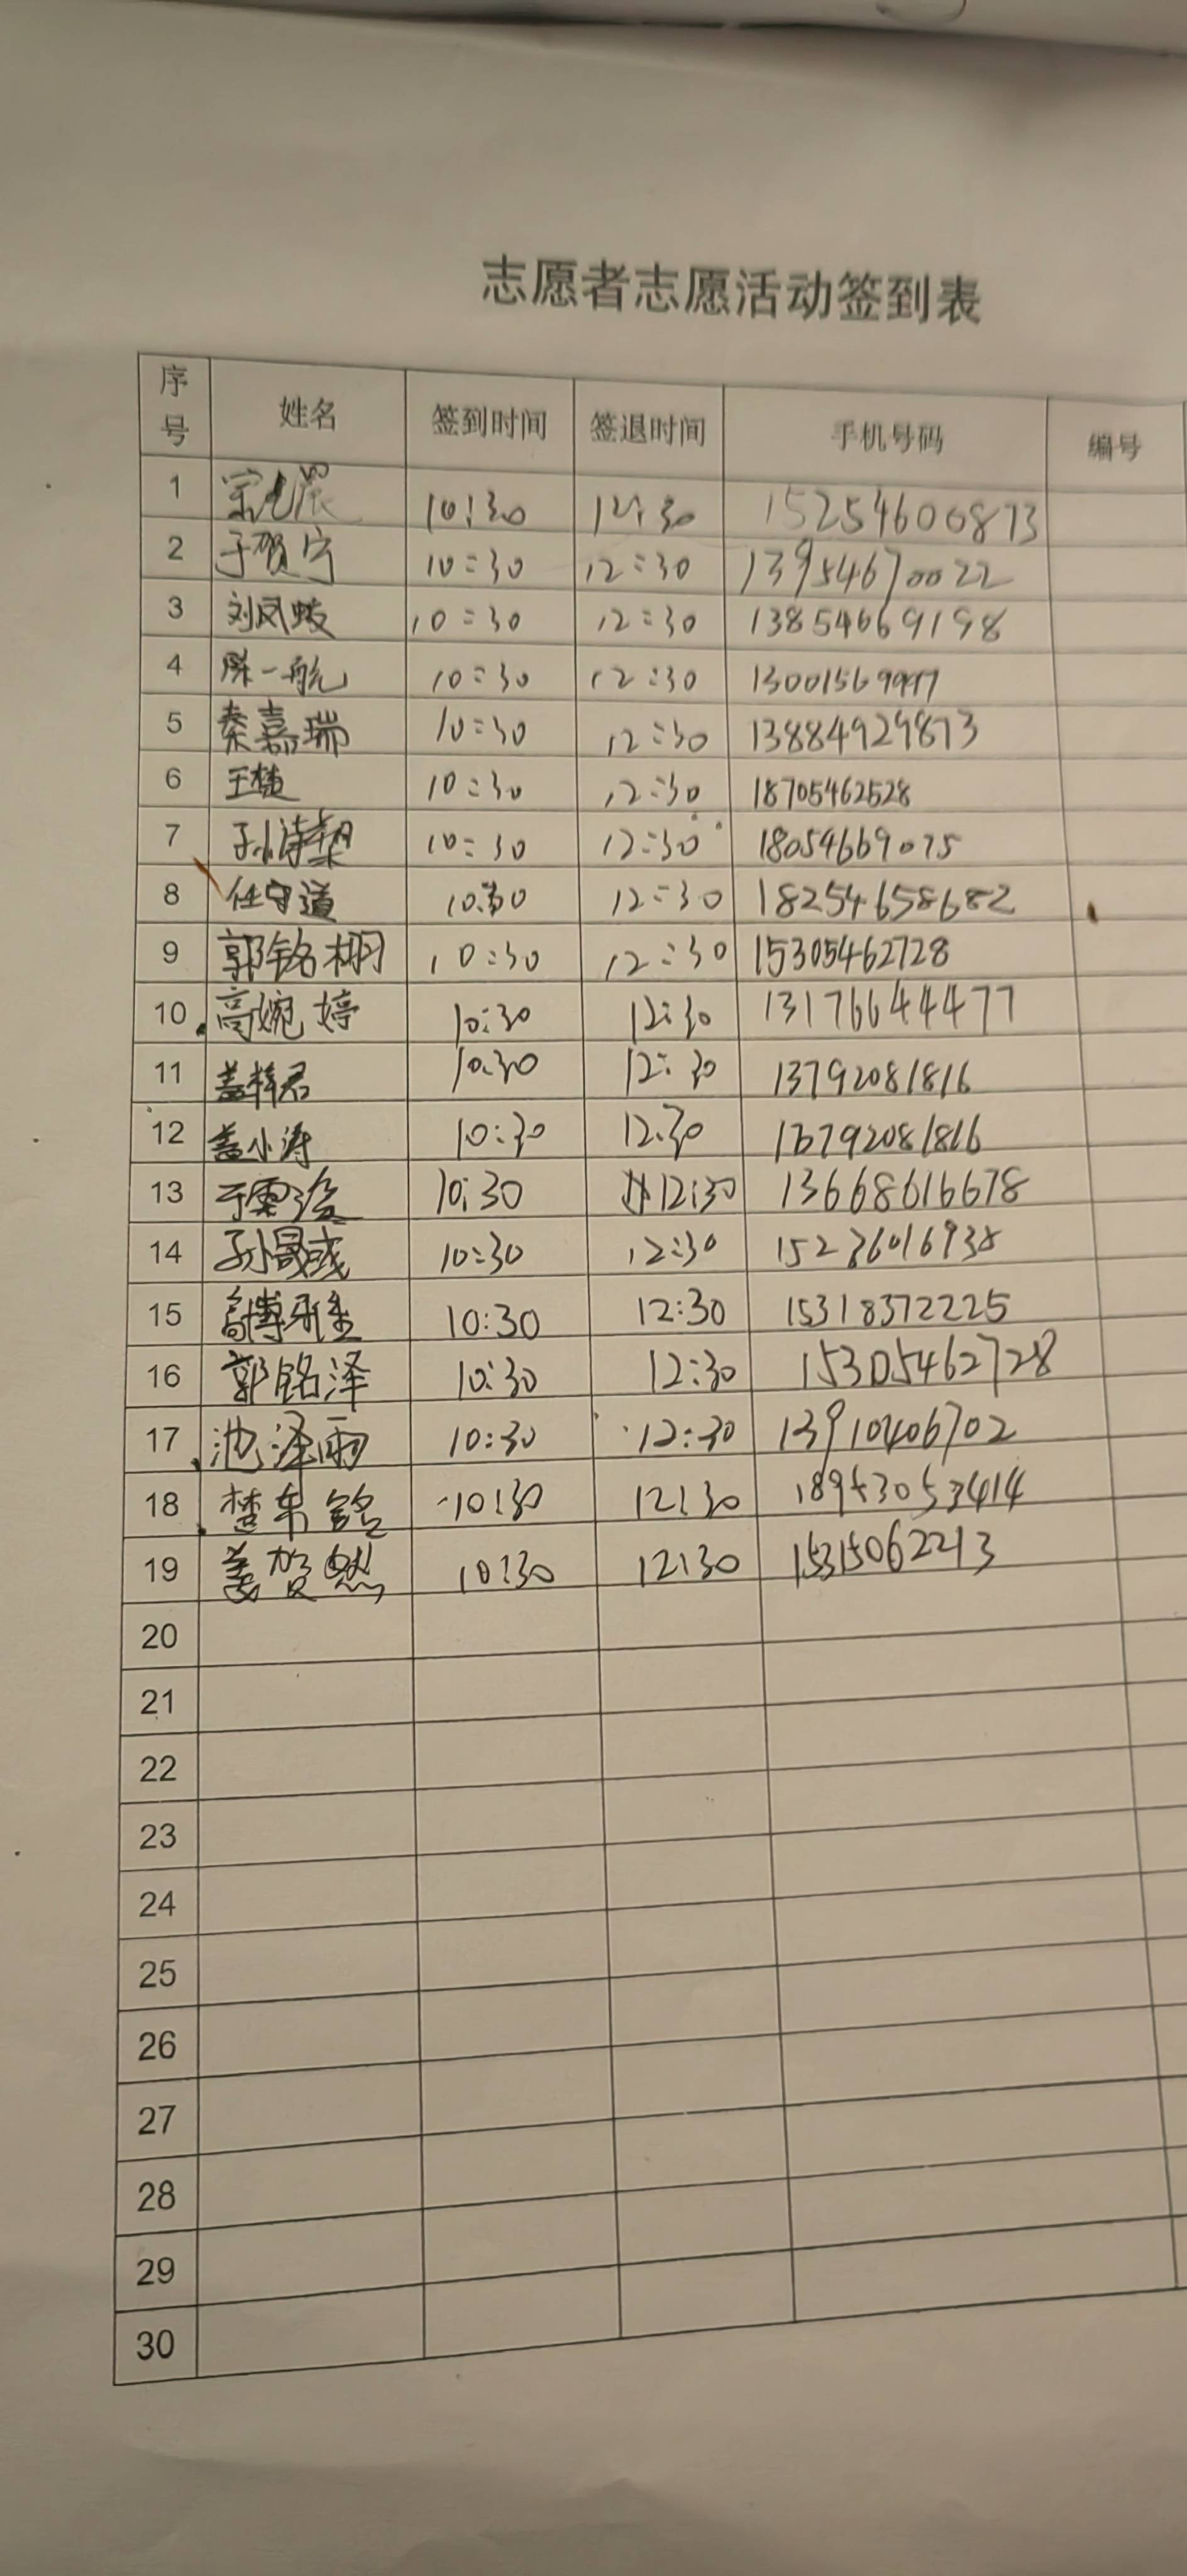 志愿者志愿活动签到表
序号 姓名 签到时间 签退时间 手机号码 编号
1 10:30 12:30 15254600873
2 于贺宁 10:30 12:30 13954670022
3 刘凤 10:30 12:30 13854669198
4 陈一航 10:30 12:30
5 秦嘉瑞 10:30 12:30 13884929873
6 王楚 10:30 12:30 18705462528
7 孙诗 10:30 12:30 18054669075
8 任守道 10:30 12:30 18254658682
9 郭铭栩 10:30 12:30 15305462728
10 高婉婷 10:30 12:30 13176644477
11 盖梓君 10:30 12:30 13792081816
12 盖小涛 10:30 12:30 13792081816
13 于 10:30 12:30 13668616678
14 孙晟彧 10:30 12:30
15 高博雅 10:30 12:30 15318372225
16 郭铭泽 10:30 12:30 15305462728
17 池泽雨 10:30 12:30 13910406702
18 楚 10:30 12:30
19 姜贺然 10:30 12:30 15315062213
20
21
22
23
24
25
26
27
28
29
30